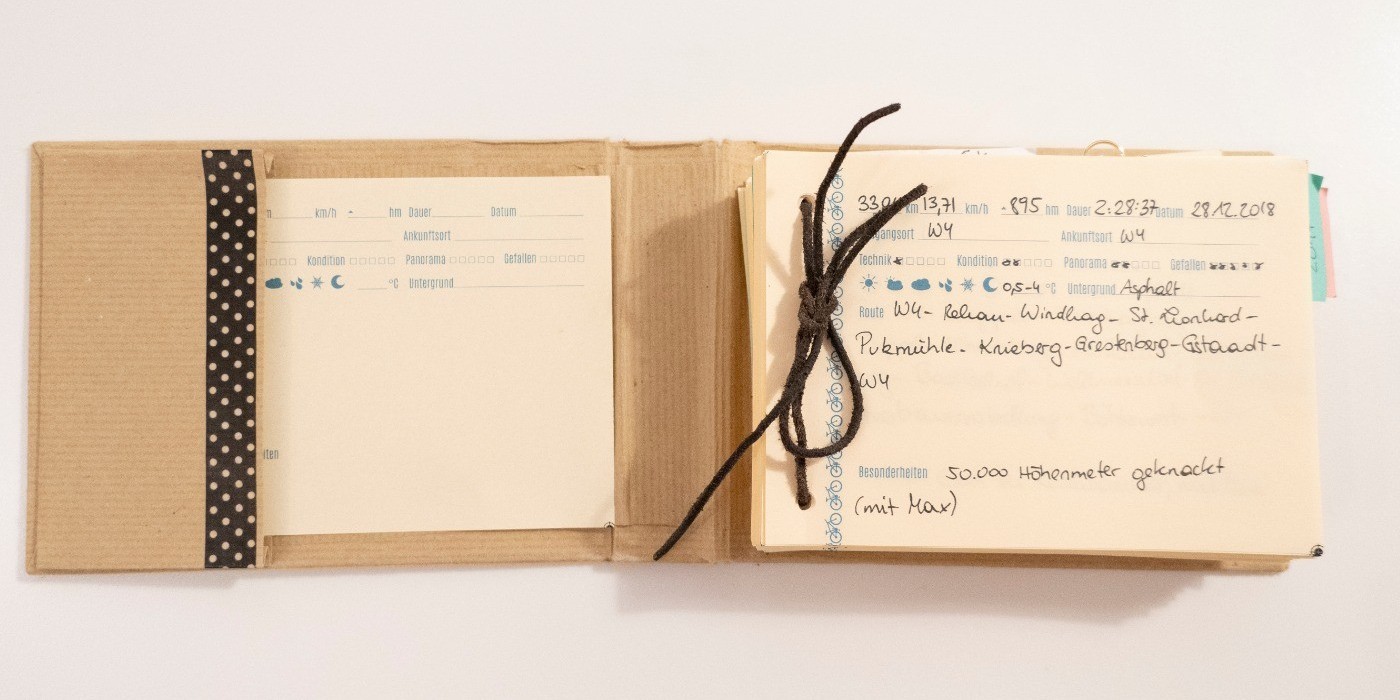 km/h hm Dauer Datum
Ankunftsort
Kondition Panorama Gefallen
°C Untergrund
km 13,71 km/h 895 hm Dauer 2:28:37 Datum 28.12.2018
W4 Ankunftsort W4
Technik Kondition Panorama Gefallen
0,5-4 °C Untergrund Asphalt
Route W4- Rehau- Windhag- St. Leonhard-
Pukmühle- Knieberg-Grestenberg-Gstaadt-
W4
Besonderheiten 50.000 Höhenmeter geknackt
(mit Max)